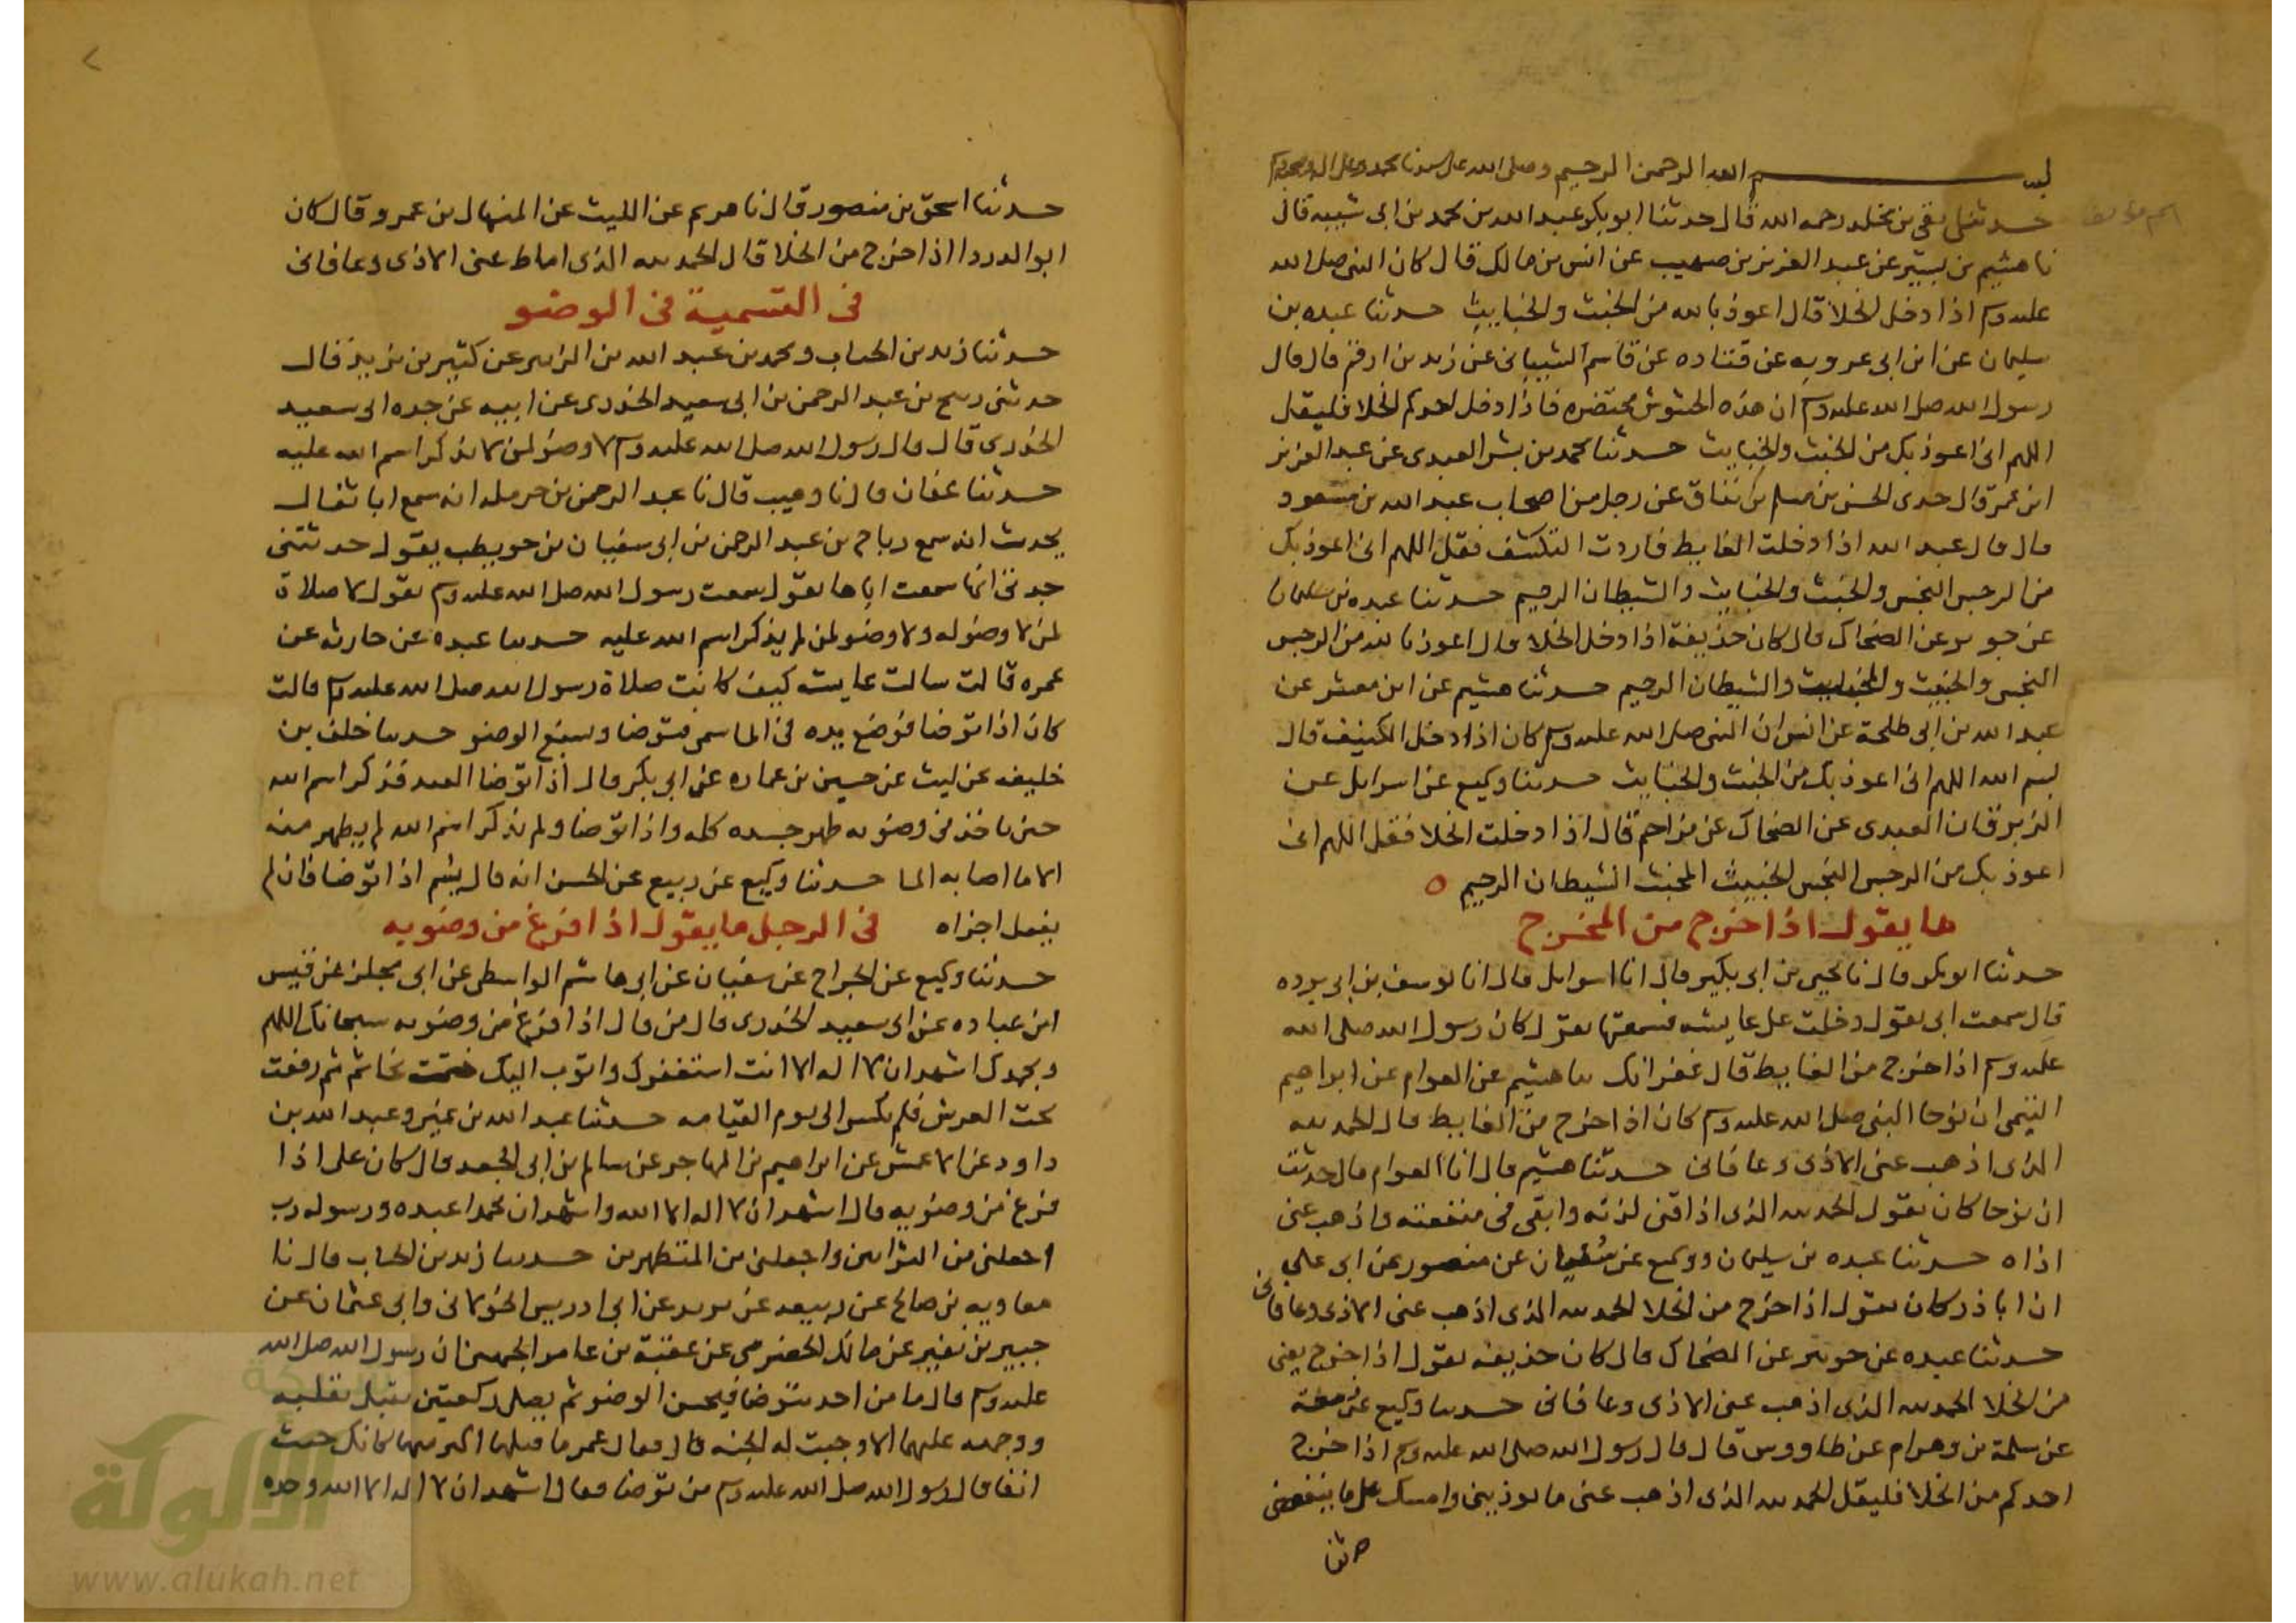 بسم الله الرحمن الرحيم وصلى الله على سيدنا محمد وعلى اله وصحبه وسلم
حدثنا بقي بن مخلد رحمه الله قال حدثنا ابو بكر عبد الله بن محمد بن ابى شيبه قال
نا هشيم بن بشير عن عبد العزيز بن صهيب عن انس بن مالك قال كان النبى صلى الله
عليه وسلم اذا دخل الخلا قال اعوذ بالله من الخبث والخبايث حدثنا عبده بن
سليمان عن ابن ابى عروبه عن قتاده عن قاسم الشيبانى عن زيد بن ارقم قال قال
رسول الله صلى الله عليه وسلم ان هذه الحشوش محتضره فاذا دخل احدكم الخلا فليقل
اللهم انى اعوذ بك من الخبث والخبايث حدثنا محمد بن بشر العبدى عن عبد العزيز
ابن عمر قال حدى الحسن بن مسلم بن نفاق عن رجل من اصحاب عبد الله بن مسعود
قال قال عبد الله اذا دخلت الغايط فاردت التكشف فقل اللهم انى اعوذ بك
من الرجس النجس والخبث والخبايث والشيطان الرجيم حدثنا عبده بن سلمان
عن جويبر عن الضحاك قال كان حذيفة اذا دخل الخلا قال اعوذ بالله من الرجس
النجس والخبث والخبايث والشيطان الرجيم حدثنا هشيم عن ابن معشر عن
عبد الله بن ابى طلحة عن انس ان النبى صلى الله عليه وسلم كان اذا دخل الكنيف قال
بسم الله اللهم انى اعوذ بك من الخبث والخبايث حدثنا وكيع عن اسرايل عن
الزبرقان العبدى عن الضحاك عن مزاحم قال اذا دخلت الخلا فقل اللهم انى
اعوذ بك من الرجس النجس الخبيث المخبث الشيطان الرجيم
ما يقول اذا خرج من المخرج
حدثنا ابو بكر قال نا يحيى بن ابى بكير قال انا اسرايل قال انا يوسف بن ابى برده
قال سمعت ابى يقول دخلت على عايشه فسمعتها تقول كان رسول الله صلى الله
عليه وسلم اذا خرج من الغايط قال غفرانك نا هشيم عن العوام عن ابراهيم
التيمى ان نوحا النبى صلى الله عليه وسلم كان اذا خرج من الغايط قال الحمد لله
الذى اذهب عنى الاذى وعافانى حدثنا هشيم قال انا العوام قال حدثت
ان نوحا كان يقول الحمد لله الذى اذاقنى لذته وابقى فى منفعته واذهب عنى
اذاه حدثنا عبده بن سليمان ووكيع عن سفيان عن منصور عن ابى على
ان ابا ذر كان يقول اذا خرج من الخلا الحمد لله الذى اذهب عنى الاذى وعافانى
حدثنا عبده عن جويبر عن الضحاك قال كان حذيفه يقول اذا خرج يعنى
من الخلا الحمد لله الذى اذهب عنى الاذى وعافانى حدثنا وكيع عن زمعة
عن سلمة بن وهرام عن طاووس قال قال رسول الله صلى الله عليه وسلم اذا خرج
احدكم من الخلا فليقل الحمد لله الذى اذهب عنى ما يوذينى وامسك على ما ينفعنى
حدثنا اسحق بن منصور قال نا هريم عن الليث عن المنهال بن عمرو قال كان
ابو الدردا اذا خرج من الخلا قال الحمد لله الذى اماط عنى الاذى وعافانى
فى التسمية فى الوضو
حدثنا زيد بن الحباب ومحمد بن عبد الله بن الزبير عن كثير بن زيد قال
حدثنى ربيح بن عبد الرحمن بن ابى سعيد الخدرى عن ابيه عن جده ابى سعيد
الخدرى قال قال رسول الله صلى الله عليه وسلم لا وضو لمن لا يذكر اسم الله عليه
حدثنا عفان قال نا وهيب قال نا عبد الرحمن بن حرمله انه سمع ابا ثفال
يحدث انه سمع رباح بن عبد الرحمن بن ابى سفيان بن حويطب يقول حدثتنى
جدتى انها سمعت اباها يقول سمعت رسول الله صلى الله عليه وسلم يقول لا صلاة
لمن لا وضو له ولا وضو لمن لم يذكر اسم الله عليه حدثنا عبدة عن حارثه عن
عمره قالت سالت عايشه كيف كانت صلاة رسول الله صلى الله عليه وسلم قالت
كان اذا توضا فوضع يده فى الما سمى فتوضا ويسبغ الوضو حدثنا خلف بن
خليفه عن ليث عن حسين بن عماره عن ابى بكر قال اذا توضا العبد فذكر اسم الله
حين ياخذ فى وضويه طهر جسده كله واذا توضا ولم يذكر اسم الله لم يطهر منه
الا ما اصابه الما حدثنا وكيع عن ربيع عن الحسن انه قال يسم اذا توضا فان لم
يفعل اجزاه فى الرجل ما يقول اذا فرغ من وضويه
حدثنا وكيع عن الجراح عن سفيان عن ابى هاشم الواسطى عن ابى مجلز عن قيس
ابن عباده عن ابى سعيد الخدرى قال من قال اذا فرغ من وضويه سبحانك اللهم
وبحمدك اشهد ان لا اله الا انت استغفرك واتوب اليك ختمت بخاتم ثم رفعت
تحت العرش فلم تكسر الى يوم القيامه حدثنا عبد الله بن نمير وعبد الله بن
داود عن الاعمش عن ابراهيم بن المهاجر عن سالم بن ابى الجعد قال كان على اذا
فرغ من وضويه قال اشهد ان لا اله الا الله واشهد ان محمدا عبده ورسوله رب
اجعلنى من التوابين واجعلنى من المتطهرين حدثنا زيد بن الحباب قال نا
معاويه بن صالح عن ربيعه عن يزيد عن ابى ادريس الخولانى وابى عثمان عن
جبير بن نفير عن مالك الحضرمى عن عقبة بن عامر الجهنى ان رسول الله صلى الله
عليه وسلم قال ما من احد يتوضا فيحسن الوضو ثم يصلى ركعتين يقبل بقلبه
ووجهه عليهما الا وجبت له الجنه قال فقال عمر ما قبلها اكبر منها كانك جيت
انفا قال رسول الله صلى الله عليه وسلم من توضا فقال اشهد ان لا اله الا الله وحده
الألوكة
www.alukah.net